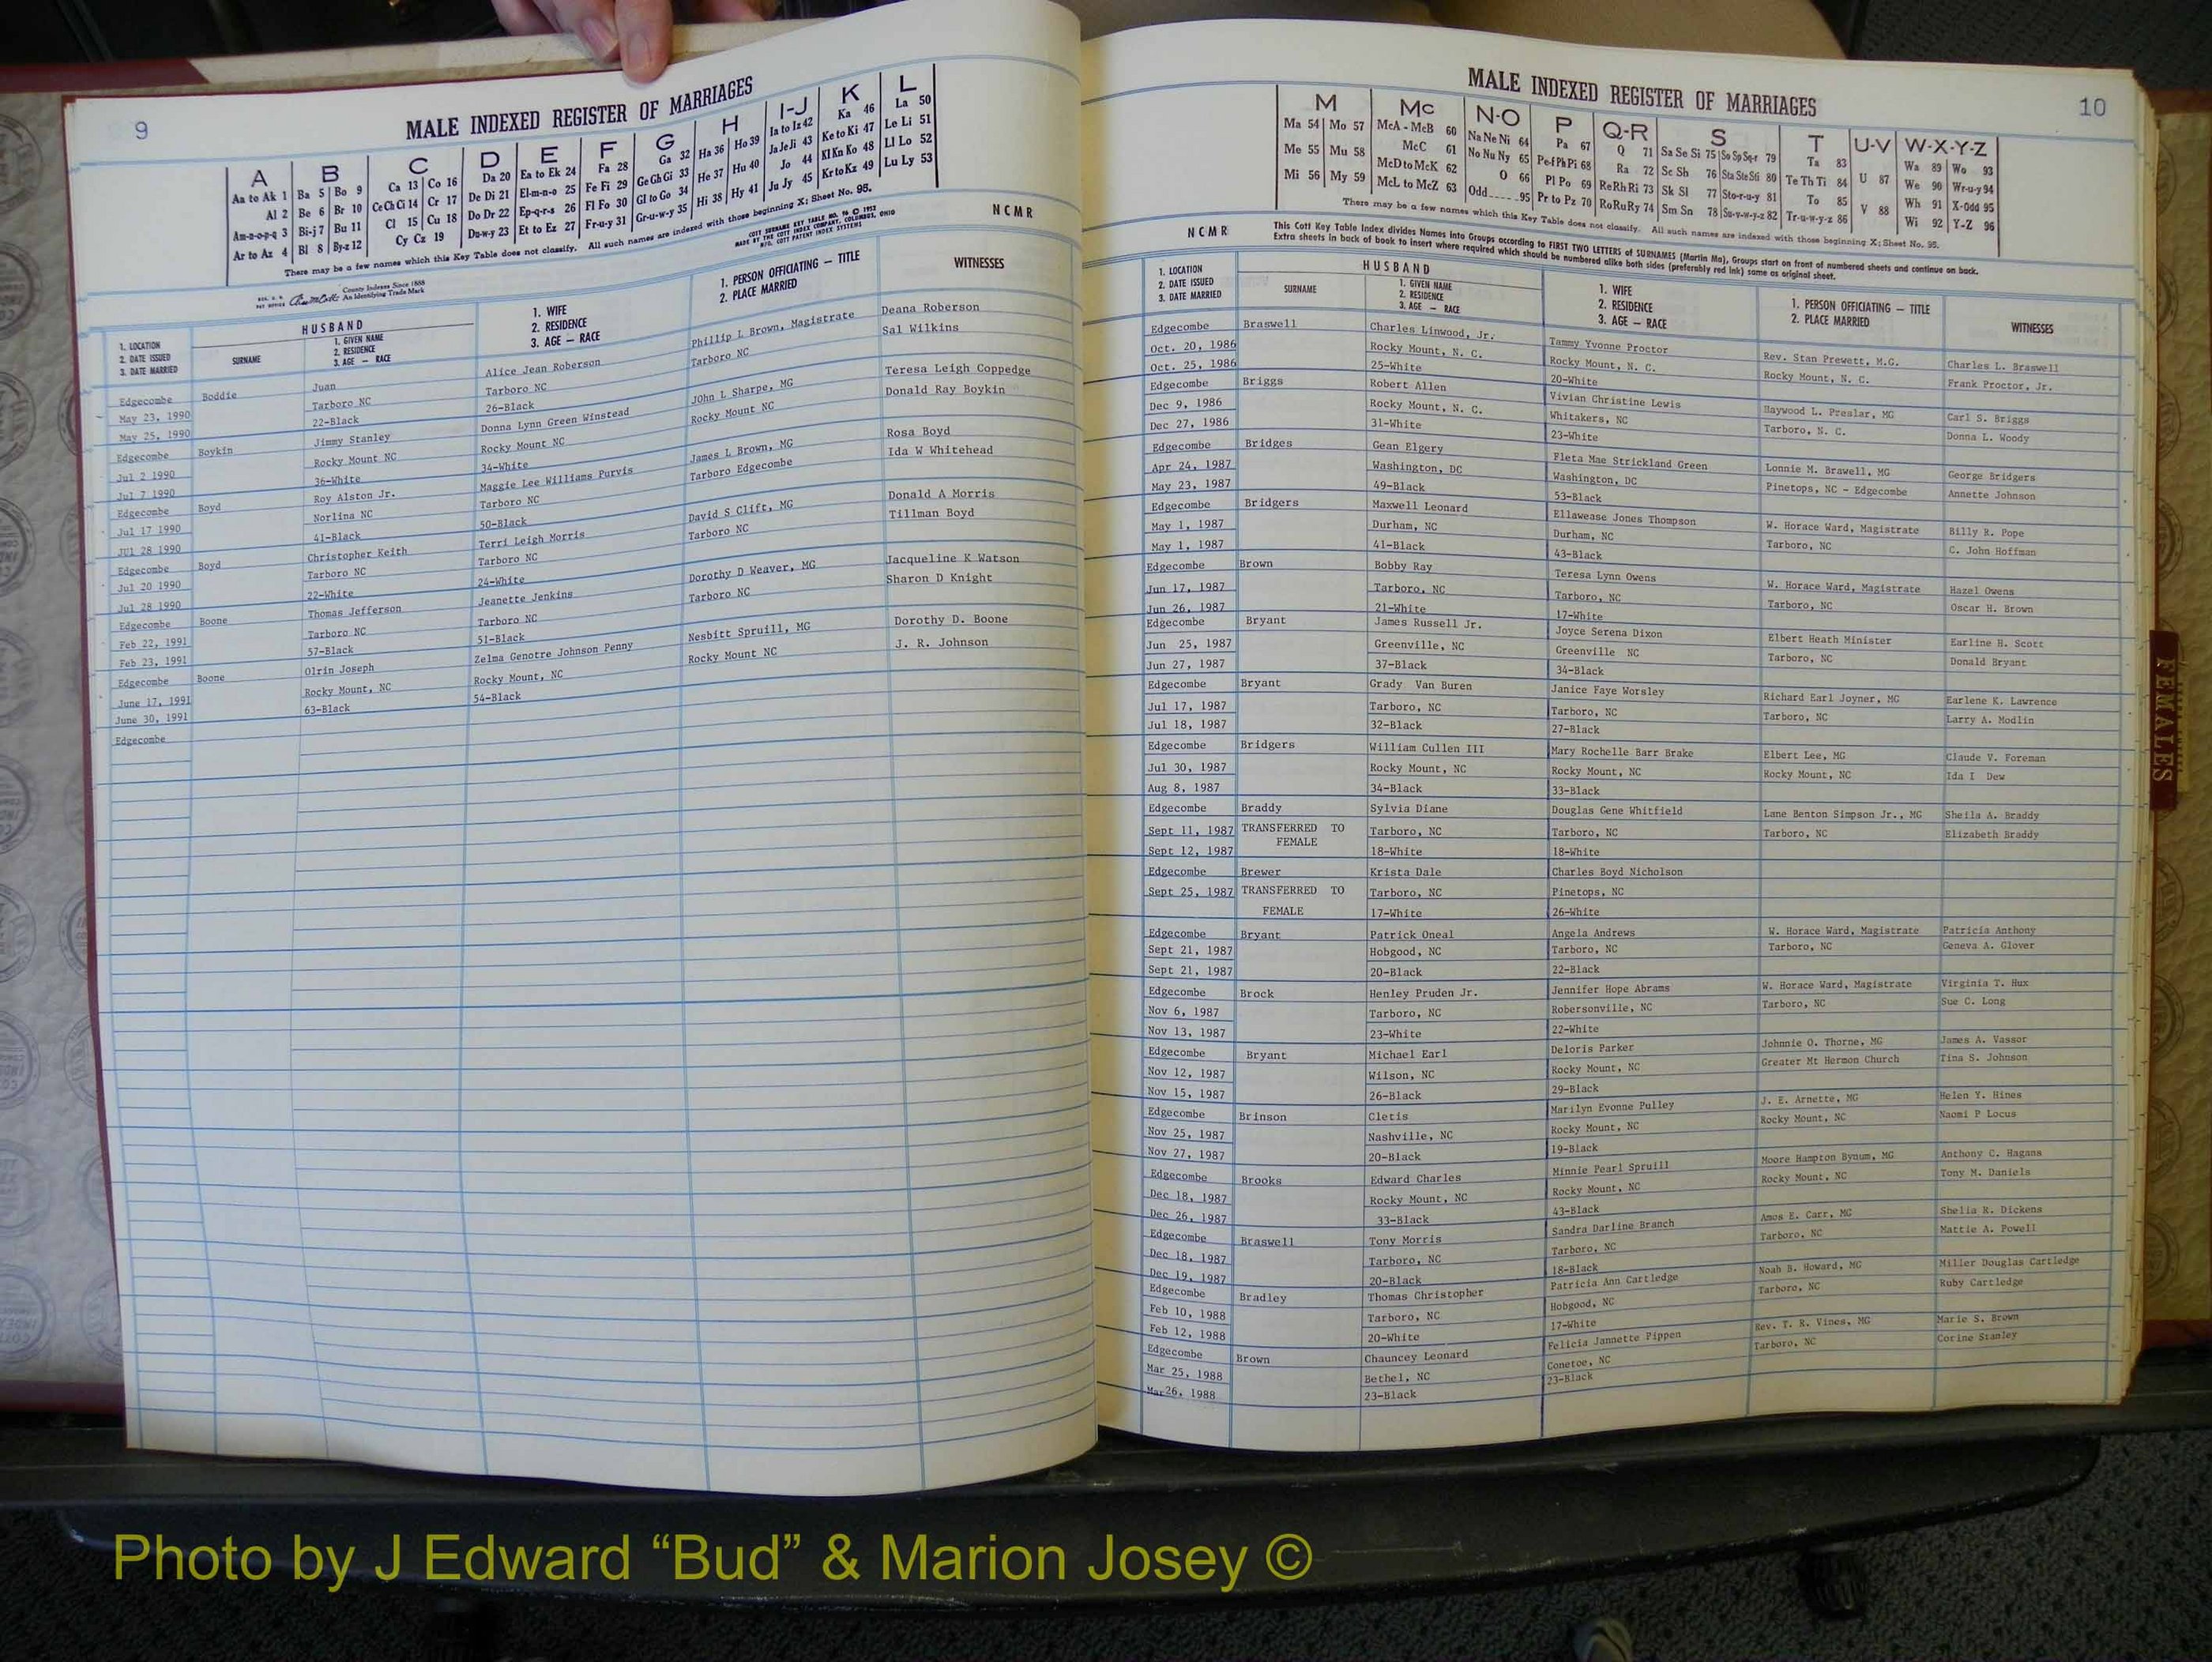 9
MALE INDEXED REGISTER OF MARRIAGES
A B C D E F G H I-J K L
Aa to Ak 1 Ba 5 Bo 9 Ca 13 Co 16 Da 20 Ea to Ek 24 Fa 28 Ga 32 Ha 36 Ho 39 Ia to Iz 42 Ka 46 La 50
Al 2 Be 6 Br 10 Ce Ch Ci 14 Cr 17 De Di 21 El-m-n-o 25 Fe Fi 29 Ge Gh Gi 33 He 37 Hu 40 Ja Je Ji 43 Ke to Ki 47 Le Li 51
Am-n-o-p-q 3 Bi-j 7 Bu 11 Cl 15 Cu 18 Do Dr 22 Ep-q-r-s 26 Fl Fo 30 Gl to Go 34 Hi 38 Hy 41 Jo 44 Kl Kn Ko 48 Ll Lo 52
Ar to Az 4 Bl 8 By-z 12 Cy Cz 19 Du-w-y 23 Et to Ez 27 Fr-u-y 31 Gr-u-w-y 35 Ju Jy 45 Kr to Kz 49 Lu Ly 53
There may be a few names which this Key Table does not classify. All such names are indexed with those beginning X; Sheet No. 95.
County Indexes Since 1888
An Identifying Trade Mark
COTT SURNAME KEY TABLE NO. 96 © 1952
MADE BY THE COTT INDEX COMPANY, COLUMBUS, OHIO
MFG. COTT PATENT INDEX SYSTEMS
NCMR
1. LOCATION
2. DATE ISSUED
3. DATE MARRIED
HUSBAND
SURNAME
1. GIVEN NAME
2. RESIDENCE
3. AGE — RACE
1. WIFE
2. RESIDENCE
3. AGE — RACE
1. PERSON OFFICIATING — TITLE
2. PLACE MARRIED
WITNESSES
Edgecombe Boddie Juan Alice Jean Roberson Phillip L Brown, Magistrate Deana Roberson
May 23, 1990 Tarboro NC Tarboro NC Tarboro NC Sal Wilkins
May 25, 1990 22-Black 26-Black
Edgecombe Boykin Jimmy Stanley Donna Lynn Green Winstead JOhn L Sharpe, MG Teresa Leigh Coppedge
Jul 2 1990 Rocky Mount NC Rocky Mount NC Rocky Mount NC Donald Ray Boykin
Jul 7 1990 36-White 34-White
Edgecombe Boyd Roy Alston Jr. Maggie Lee Williams Purvis James L Brown, MG Rosa Boyd
Jul 17 1990 Norlina NC Tarboro NC Tarboro Edgecombe Ida W Whitehead
JUl 28 1990 41-Black 50-Black
Edgecombe Boyd Christopher Keith Terri Leigh Morris David S Clift, MG Donald A Morris
Jul 20 1990 Tarboro NC Tarboro NC Tarboro NC Tillman Boyd
Jul 28 1990 22-White 24-White
Edgecombe Boone Thomas Jefferson Jeanette Jenkins Dorothy D Weaver, MG Jacqueline K Watson
Feb 22, 1991 Tarboro NC Tarboro NC Tarboro NC Sharon D Knight
Feb 23, 1991 57-Black 51-Black
Edgecombe Boone Olrin Joseph Zelma Genotre Johnson Penny Nesbitt Spruill, MG Dorothy D. Boone
June 17, 1991 Rocky Mount, NC Rocky Mount, NC Rocky Mount NC J. R. Johnson
June 30, 1991 63-Black 54-Black
Edgecombe
MALE INDEXED REGISTER OF MARRIAGES
10
M Mc N-O P Q-R S T U-V W-X-Y-Z
Ma 54 Mo 57 McA - McB 60 Na Ne Ni 64 Pa 67 Q 71 Sa Se Si 75 So Sp Sq-r 79 Ta 83 U 87 Wa 89 Wo 93
Me 55 Mu 58 McC 61 No Nu Ny 65 Pe-f Ph Pi 68 Ra 72 Sc Sh 76 Sta Ste Sti 80 Te Th Ti 84 V 88 We 90 Wr-u-y 94
Mi 56 My 59 McD to McK 62 O 66 Pl Po 69 Re Rh Ri 73 Sk Sl 77 Sto-r-u-y 81 To 85 Wh 91 X-Odd 95
McL to McZ 63 Odd 95 Pr to Pz 70 Ro Ru Ry 74 Sm Sn 78 Su-v-w-y-z 82 Tr-u-w-y-z 86 Wi 92 Y-Z 96
There may be a few names which this Key Table does not classify. All such names are indexed with those beginning X; Sheet No. 95.
NCMR
This Cott Key Table Index divides Names into Groups according to FIRST TWO LETTERS of SURNAMES (Martin Ma), Groups start on front of numbered sheets and continue on back.
Extra sheets in back of book to insert where required which should be numbered alike both sides (preferably red ink) same as original sheet.
1. LOCATION
2. DATE ISSUED
3. DATE MARRIED
HUSBAND
SURNAME
1. GIVEN NAME
2. RESIDENCE
3. AGE — RACE
1. WIFE
2. RESIDENCE
3. AGE — RACE
1. PERSON OFFICIATING — TITLE
2. PLACE MARRIED
WITNESSES
Edgecombe Braswell Charles Linwood, Jr. Tammy Yvonne Proctor Rev. Stan Prewett, M.G. Charles L. Braswell
Oct. 20, 1986 Rocky Mount, N. C. Rocky Mount, N. C. Rocky Mount, N. C. Frank Proctor, Jr.
Oct. 25, 1986 25-White 20-White
Edgecombe Briggs Robert Allen Vivian Christine Lewis Haywood L. Preslar, MG Carl S. Briggs
Dec 9, 1986 Rocky Mount, N. C. Whitakers, NC Tarboro, N. C. Donna L. Woody
Dec 27, 1986 31-White 23-White
Edgecombe Bridges Gean Elgery Fleta Mae Strickland Green Lonnie M. Brawell, MG George Bridgers
Apr 24, 1987 Washington, DC Washington, DC Pinetops, NC - Edgecombe Annette Johnson
May 23, 1987 49-Black 53-Black
Edgecombe Bridgers Maxwell Leonard Ellawease Jones Thompson W. Horace Ward, Magistrate Billy R. Pope
May 1, 1987 Durham, NC Durham, NC Tarboro, NC C. John Hoffman
May 1, 1987 41-Black 43-Black
Edgecombe Brown Bobby Ray Teresa Lynn Owens W. Horace Ward, Magistrate Hazel Owens
Jun 17, 1987 Tarboro, NC Tarboro, NC Tarboro, NC Oscar H. Brown
Jun 26, 1987 21-White 17-White
Edgecombe Bryant James Russell Jr. Joyce Serena Dixon Elbert Heath Minister Earline H. Scott
Jun 25, 1987 Greenville, NC Greenville NC Tarboro, NC Donald Bryant
Jun 27, 1987 37-Black 34-Black
Edgecombe Bryant Grady Van Buren Janice Faye Worsley Richard Earl Joyner, MG Earlene K. Lawrence
Jul 17, 1987 Tarboro, NC Tarboro, NC Tarboro, NC Larry A. Modlin
Jul 18, 1987 32-Black 27-Black
Edgecombe Bridgers William Cullen III Mary Rochelle Barr Brake Elbert Lee, MG Claude V. Foreman
Jul 30, 1987 Rocky Mount, NC Rocky Mount, NC Rocky Mount, NC Ida I Dew
Aug 8, 1987 34-Black 33-Black
Edgecombe Braddy Sylvia Diane Douglas Gene Whitfield Lane Benton Simpson Jr., MG Sheila A. Braddy
Sept 11, 1987 TRANSFERRED TO Tarboro, NC Tarboro, NC Tarboro, NC Elizabeth Braddy
Sept 12, 1987 FEMALE 18-White 18-White
Edgecombe Brewer Krista Dale Charles Boyd Nicholson
Sept 25, 1987 TRANSFERRED TO Tarboro, NC Pinetops, NC
FEMALE 17-White 26-White
Edgecombe Bryant Patrick Oneal Angela Andrews W. Horace Ward, Magistrate Patricia Anthony
Sept 21, 1987 Hobgood, NC Tarboro, NC Tarboro, NC Geneva A. Glover
Sept 21, 1987 20-Black 22-Black
Edgecombe Brock Henley Pruden Jr. Jennifer Hope Abrams W. Horace Ward, Magistrate Virginia T. Hux
Nov 6, 1987 Tarboro, NC Robersonville, NC Tarboro, NC Sue C. Long
Nov 13, 1987 23-White 22-White
Edgecombe Bryant Michael Earl Deloris Parker Johnnie O. Thorne, MG James A. Vassor
Nov 12, 1987 Wilson, NC Rocky Mount, NC Greater Mt Hermon Church Tina S. Johnson
Nov 15, 1987 26-Black 29-Black
Edgecombe Brinson Cletis Marilyn Evonne Pulley J. E. Arnette, MG Helen Y. Hines
Nov 25, 1987 Nashville, NC Rocky Mount, NC Rocky Mount, NC Naomi P Locus
Nov 27, 1987 20-Black 19-Black
Edgecombe Brooks Edward Charles Minnie Pearl Spruill Moore Hampton Bynum, MG Anthony C. Hagans
Dec 18, 1987 Rocky Mount, NC Rocky Mount, NC Rocky Mount, NC Tony M. Daniels
Dec 26, 1987 33-Black 43-Black
Edgecombe Braswell Tony Morris Sandra Darline Branch Amos E. Carr, MG Shelia R. Dickens
Dec 18, 1987 Tarboro, NC Tarboro, NC Tarboro, NC Mattie A. Powell
Dec 19, 1987 20-Black 18-Black
Edgecombe Bradley Thomas Christopher Patricia Ann Cartledge Noah B. Howard, MG Miller Douglas Cartledge
Feb 10, 1988 Tarboro, NC Hobgood, NC Tarboro, NC Ruby Cartledge
Feb 12, 1988 20-White 17-White
Edgecombe Brown Chauncey Leonard Felicia Jannette Pippen Rev. T. R. Vines, MG Marie S. Brown
Mar 25, 1988 Bethel, NC Conetoe, NC Tarboro, NC Corine Stanley
Mar 26, 1988 23-Black 23-Black
FEMALES
Photo by J Edward “Bud” & Marion Josey ©